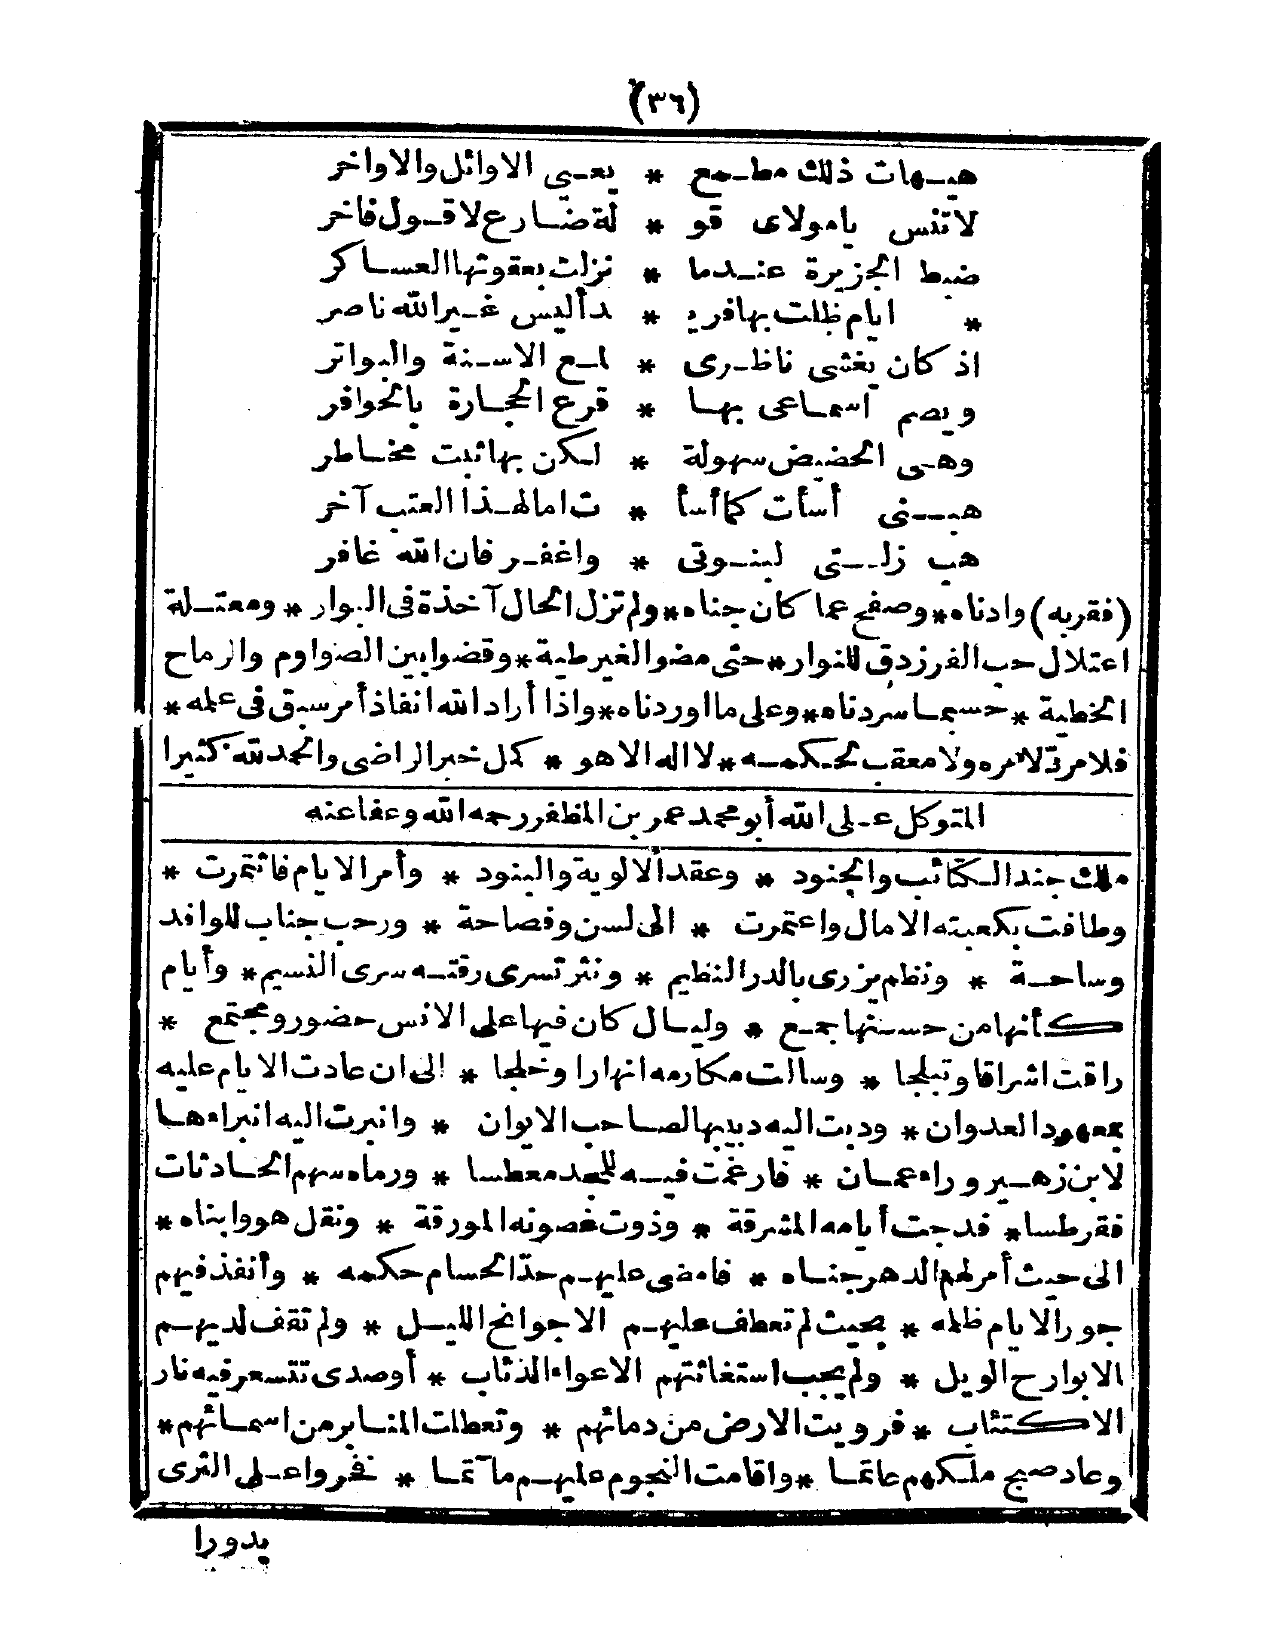 (٣٦)
هيهات ذلك مطمع * يعيى الاوائل والاواخر
لاتنس يامولاى قو * لة ضارع لاقول فاخر
ضبط الجزيرة عندما * نزلت بعقوتها العساكر
* ايام ظلت بها فريـ * دأليس غير الله ناصر
اذ كان يغشى ناظرى * لمع الاسنة والبواتر
ويصم اسماعى بها * قرع الحجارة بالحوافر
وهى الحضيض سهولة * لكن بها ثبت مخاطر
هبنى أسأت كما أسأ * ت امالهذا العتب آخر
هب زلتى لبنوتى * واغفر فان الله غافر
(فقربه) وادناه * وصفح عما كان جناه * ولم تزل الحال آخذة فى البوار * ومعتلة
اعتلال حب الفرزدق للنوار * حتى مضوا لغير طية * وقضوا بين الصوارم والرماح
الخطية * حسبما سردناه * وعلى ما اوردناه * واذا أراد الله انفاذ أمر سبق فى علمه *
فلامردّ لامره ولا معقب لحكمه * لا اله الا هو * كمل خبر الراضى والحمد لله كثيرا
المتوكل على الله أبو محمد عمر بن المظفر رحمه الله وعفا عنه
ملك جند الكتائب والجنود * وعقد الالوية والبنود * وأمر الايام فائتمرت *
وطافت بكعبته الامال واعتمرت * الى لسن وفصاحة * ورحب جناب للوافد
وساحة * ونظم يزرى بالدر النظيم * ونثر تسرى رقته سرى النسيم * وأيام
كأنها من حسنها جمع * وليال كان فيها على الانس حضور ومجتمع *
راقت اشراقا وتبلجا * وسالت مكارمه انهارا وخلجا * الى ان عادت الايام عليه
بمعهود العدوان * ودبت اليه دبيبها لصاحب الايوان * وانبرت اليه انبراءها
لابن زهير وراء عمان * فارغمت فيه للمجد معطسا * ورماه سهم الحادثات
فقرطسا * فدجت أيامه المشرقة * وذوت غصونه المورقة * ونقل هو وابناه *
الى حيث أمر لهم الدهر جناه * فامضى عليهم حدّ الحسام حكمه * وأنفذ فيهم
جور الايام ظلمه * بحيث لم تعطف عليهم الا جوانح الليل * ولم تقف لديهم
الا بوارح الويل * ولم يجب استغاثتهم الا عواء الذئاب * أو صدى تتسعر فيه نار
الاكتئاب * فرويت الارض من دمائهم * وتعطلت المنابر من اسمائهم *
وعاد صبح ملكهم عاتما * واقامت النجوم عليهم مآتما * فخروا على الثرى
بدورا